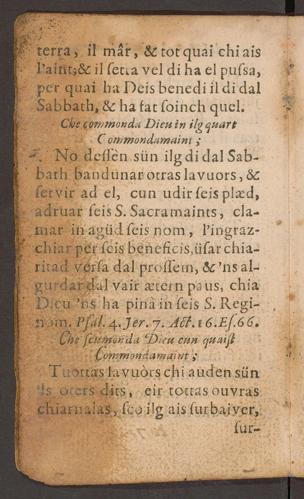 terra, il mâr, & tot quai chi ais
l'aint; & il setta vel di ha el pussa,
per quai ha Deis benedi il di dal
Sabbath, & ha fat soinch quel.
Che commonda Dieu in ilg quart
Commondamaint;
No dessen sün ilg di dal Sab-
bath bandunar otras lavuors, &
servir ad el, cun udir seis plæd,
adruar seis S. Sacramaints, cla-
mar in agüd seis nom, l'ingraz-
chiar per seis beneficis, üsar chia-
ritad versa dal prossem, & 'ns al-
gurdar dal vair ætern paus, chia
Dieu 'ns ha pinà in seis S. Regi-
nom. Psal. 4. Jer. 7. Act. 16. Es. 66.
Che commonda Dieu cun quaist
Commondamaint;
Tuottas lavuors chi auden sün
'ls oters dits, eir tottas ouvras
chiarnalas, sco ilg ais surbaiver,
sur-